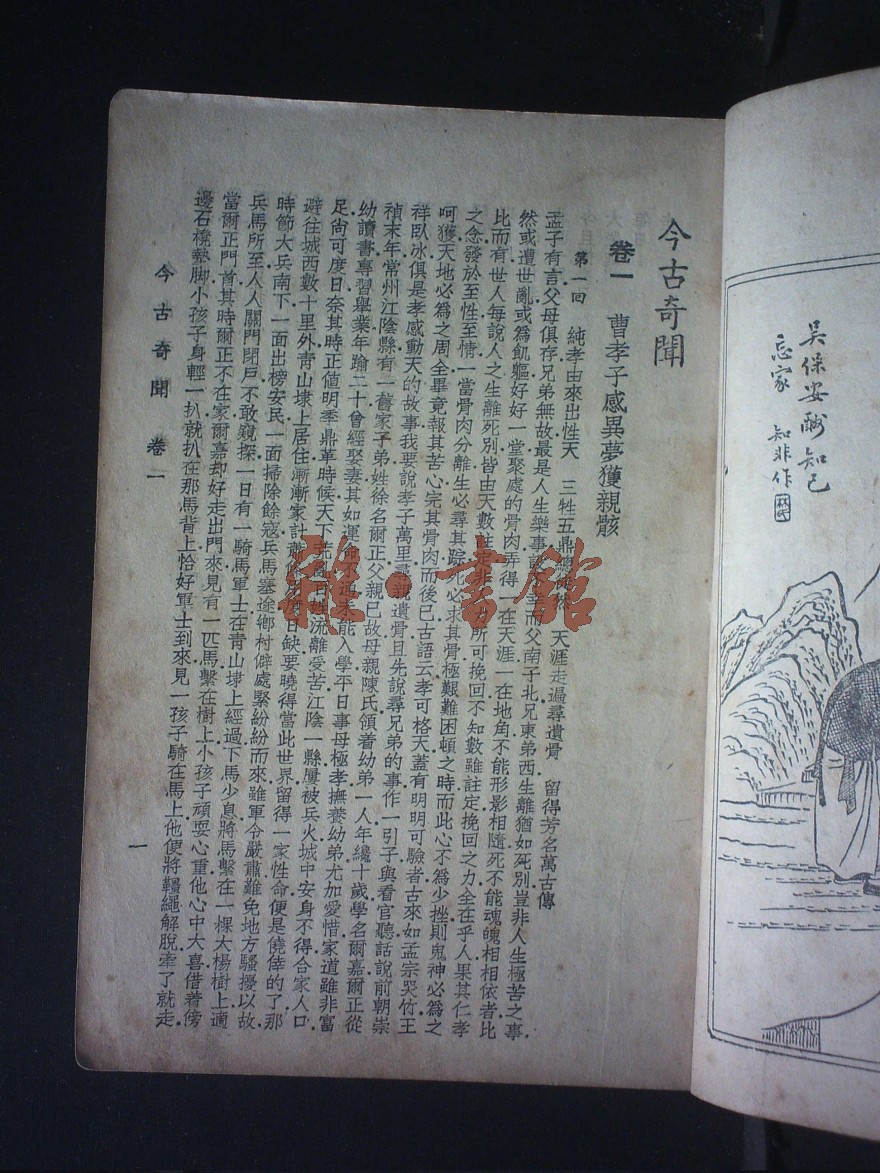 吳保安酬知己
忘家 知非作
今古奇聞
卷一 曹孝子感異夢獲親骸
第一回 純孝由來出性天 三牲五鼎總徒然 天涯走遍尋遺骨 留得芳名萬古傳
孟子有言父母俱存兄弟無故最是人生樂事設不幸而父南子北兄東弟西生離猶如死別豈非人生極苦之事
然或遭世亂或為飢軀好好一堂聚處的骨肉弄得一在天涯一在地角不能形影相隨死不能魂魄相相依者比
比而有世人每說人之生離死別皆由天數註定非人力所可挽回不知數雖註定挽回之力全在乎人果其仁孝
之念發於至性至情一當骨肉分離生必尋其踪死必求其骨極艱難困頓之時而此心不為少挫則鬼神必為之
呵獲天地必為之周全畢竟報其苦心完其骨肉而後已古語云孝可格天蓋有明明可驗者古來如孟宗哭竹王
祥臥冰俱是孝感動天的故事我要說孝子萬里尋親遺骨且先說尋兄弟的事作一引子與看官聽話說前朝崇
禎末年常州江陰縣有一舊家子弟姓徐名爾正父親已故母親陳氏領着幼弟一人年纔十歲學名爾嘉爾正從
幼讀書專習舉業年踰二十曾經娶妻其如運命不通未能入學平日事母極孝撫養幼弟尤加愛惜家道雖非富
足尚可度日奈其時正值明季鼎革時候天下荒亂百姓流離受苦江陰一縣屢被兵火城中安身不得合家人口
避往城西數十里外青山埭上居住漸漸家計蕭條度日缺要曉得當此世界留得一家性命便是僥倖的了那
時節大兵南下一面出榜安民一面掃除餘寇兵馬塞途鄉村僻處緊紛紛而來雖軍令嚴肅難免地方騷擾以故
兵馬所至人人關門閉戶不敢窺探一日有一騎馬軍士在青山埭上經過下馬少息將馬繫在一棵大楊樹上適
當爾正門首其時爾正不在家爾嘉却好走出門來見有一匹馬繫在樹上小孩子頑耍心重他心中大喜借着傍
邊石櫈墊脚小孩子身輕一扒就扒在那馬背上恰好軍士到來見一孩子騎在馬上他便將韁繩解脫牽了就走
今古奇聞 卷一
一
雅·書館